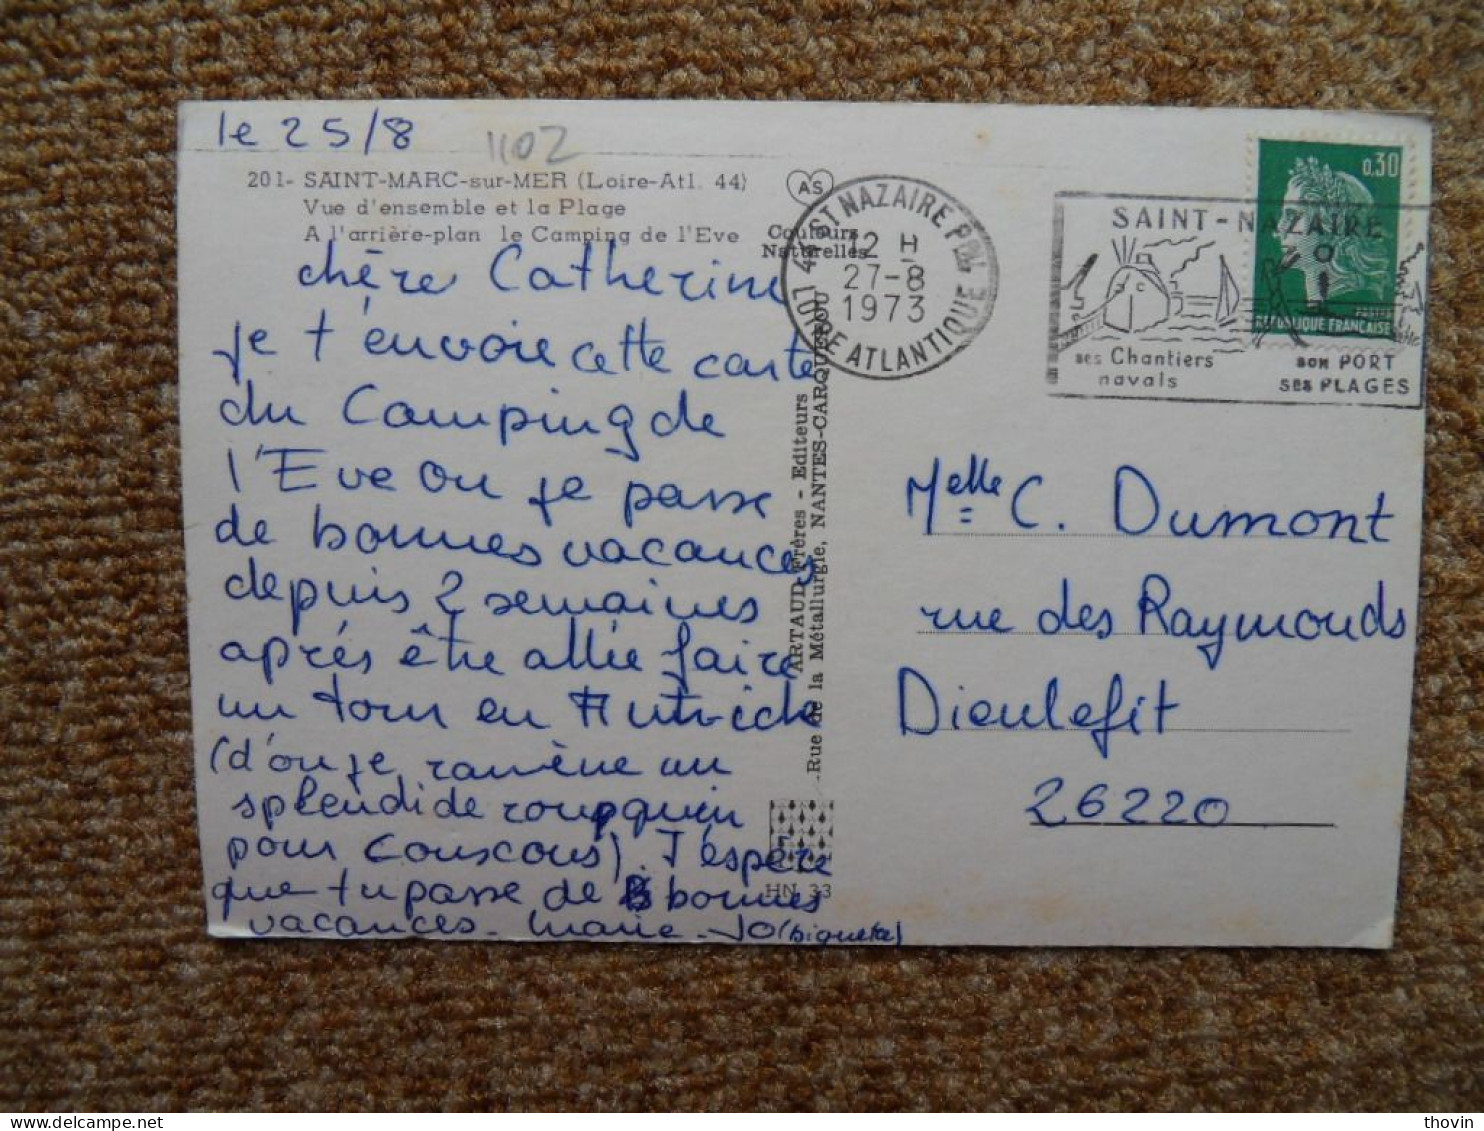 le 25/8
1102
201- SAINT-MARC-sur-MER (Loire-Atl. 44)
Vue d'ensemble et la Plage
A l'arrière-plan le Camping de l'Eve
AS
Couleurs
Naturelles
chère Catherine
je t'envoie cette carte
du Camping de
l'Eve ou je passe
de bonnes vacances
depuis 2 semaines
après être allée faire
un tour en Autriche
(d'ou je ramène un
splendide rouquin
pour Couscous). J'espère
que tu passe de bonnes
vacances. Marie-Jo
ARTAUD Frères - Editeurs
Rue de la Métallurgie, NANTES-CARQUEFOU
HN 33
44 ST NAZAIRE PPAL
12 H
27-8
1973
LOIRE ATLANTIQUE
SAINT-NAZAIRE
ses Chantiers
navals
son PORT
ses PLAGES
0,30
REPUBLIQUE FRANÇAISE
Melle C. Dumont
rue des Raymonds
Dieulefit
26220
thovin